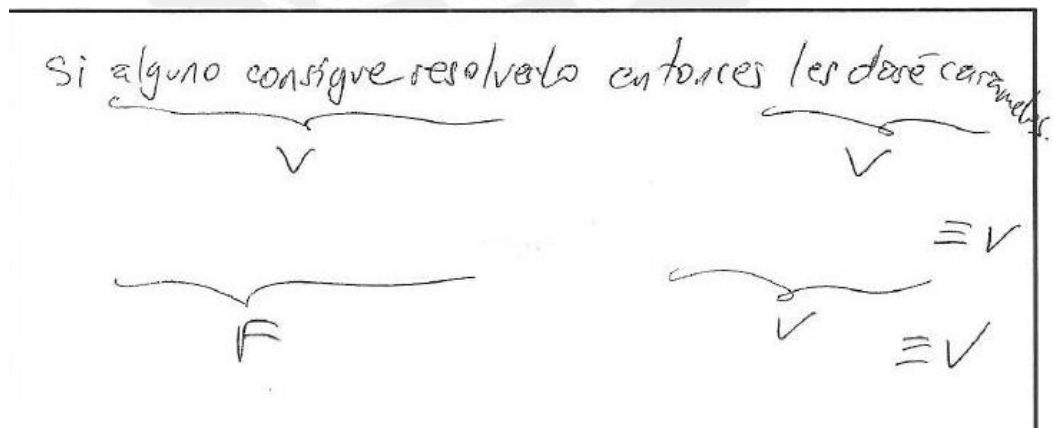 Si alguno consigue resolverlo entonces les daré caramelos.
V V
≡ V
F V
≡ V